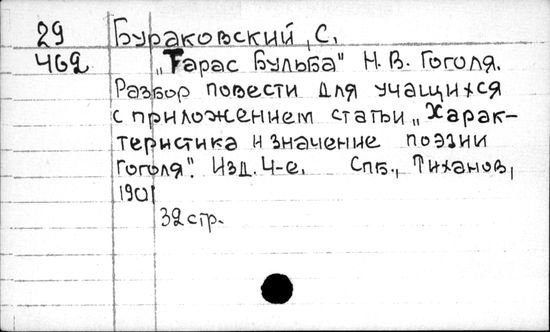 29 Бураковский, С.
462 „Тарас Бульба" Н. В. Гоголя.
Разбор повести для учащихся
с приложением статьи „Харак-
теристика и значение поэзии
Гоголя". Изд. 4-е. Спб., Тиханов,
1901
32 стр.